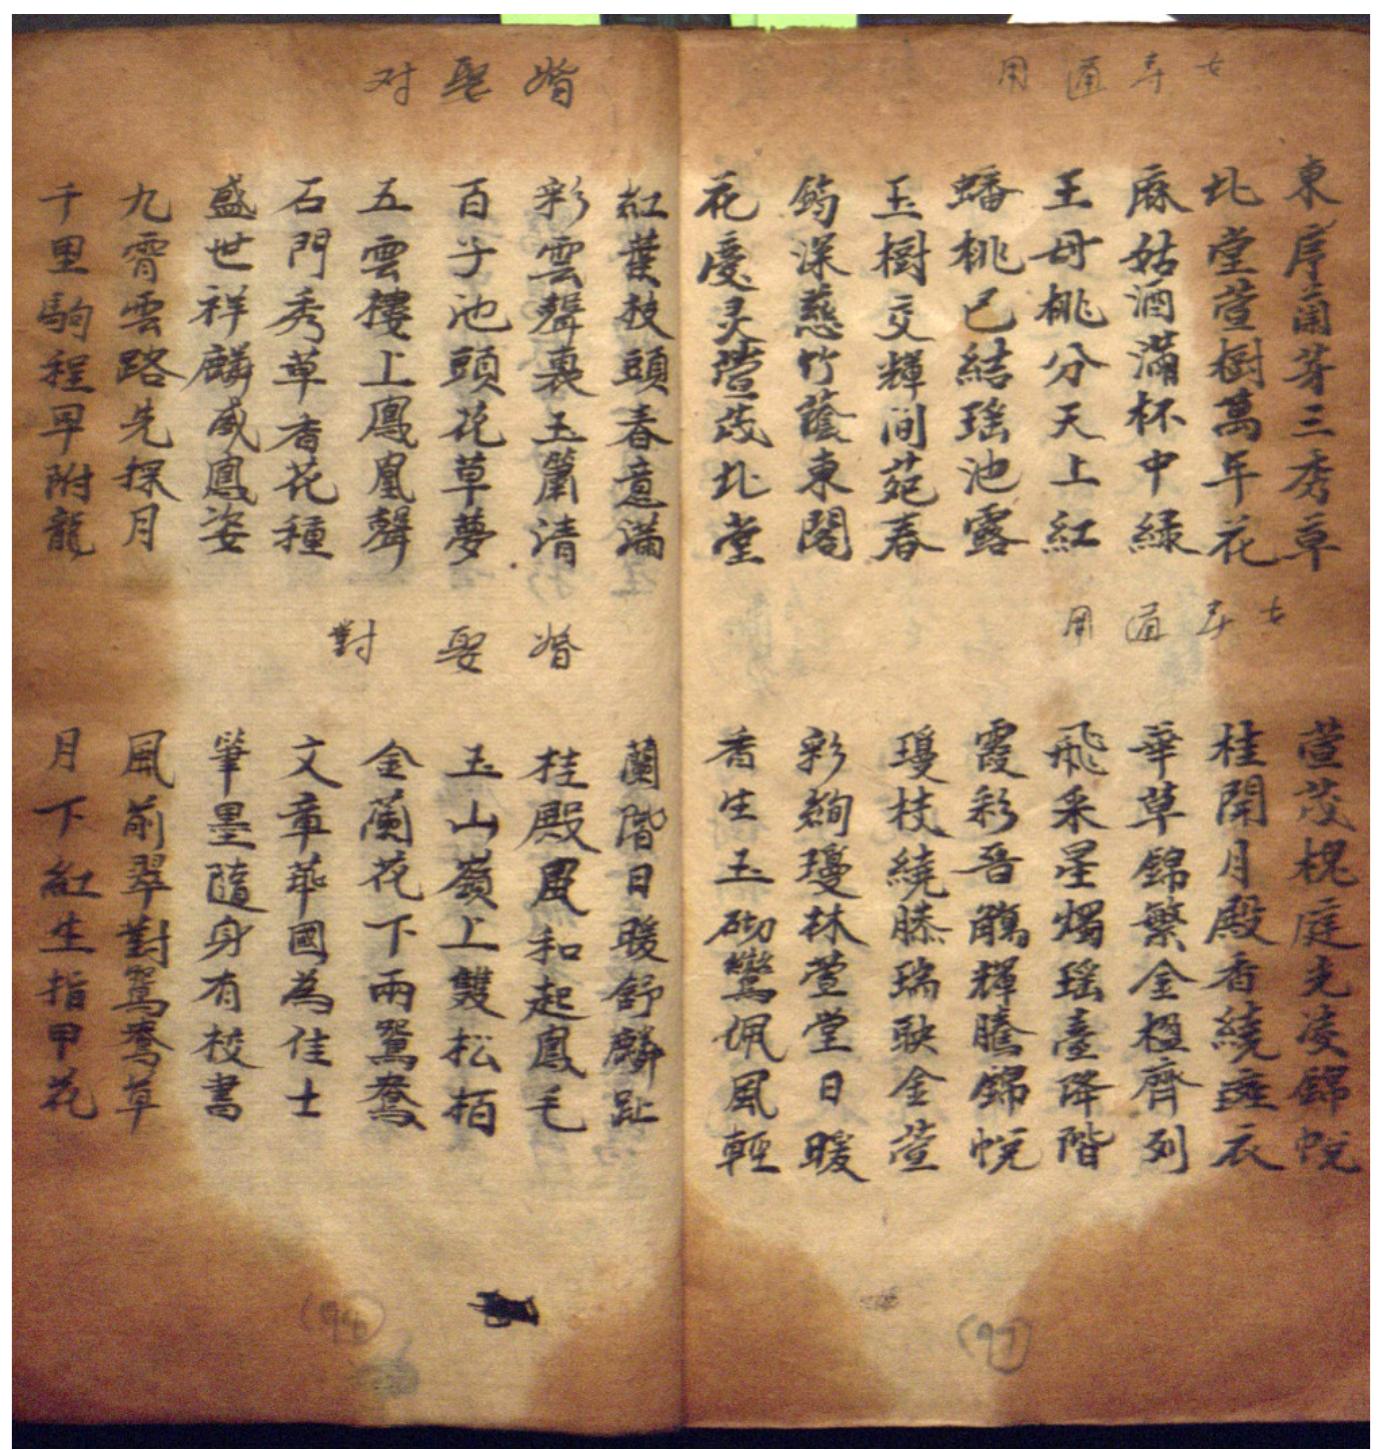 女寿通用
東序蘭芽三秀草
北堂萱樹萬年花
麻姑酒滿杯中緑
王母桃分天上紅
蟠桃已結瑶池露
玉樹交輝间苑春
筠深慈竹蔭東閣
花慶灵萱茂北堂
女寿通用
萱茂槐庭光凌錦帨
桂開月殿香繞班衣
華草錦繁金楹齊列
飛采星燭瑶臺降階
霞彩晋觴輝騰錦帨
瓊枝繞膝瑞映金萱
彩絢瓊林萱堂日暖
香生玉砌鸞佩風輕
婚娶对
紅葉枝頭春意滿
彩雲聲裏玉簫清
百子池頭花草夢
五雲樓上鳳凰聲
石門秀草香花種
盛世祥麟威鳳姿
九霄雲路先探月
千里駒程早附龍
婚娶對
蘭階日暖舒麟趾
桂殿風和起鳳毛
玉山嶺上雙松栢
金蘭花下兩鴛鴦
文章華國為佳士
筆墨隨身有校書
風前翠對鴛鴦草
月下紅生指甲花
(97)